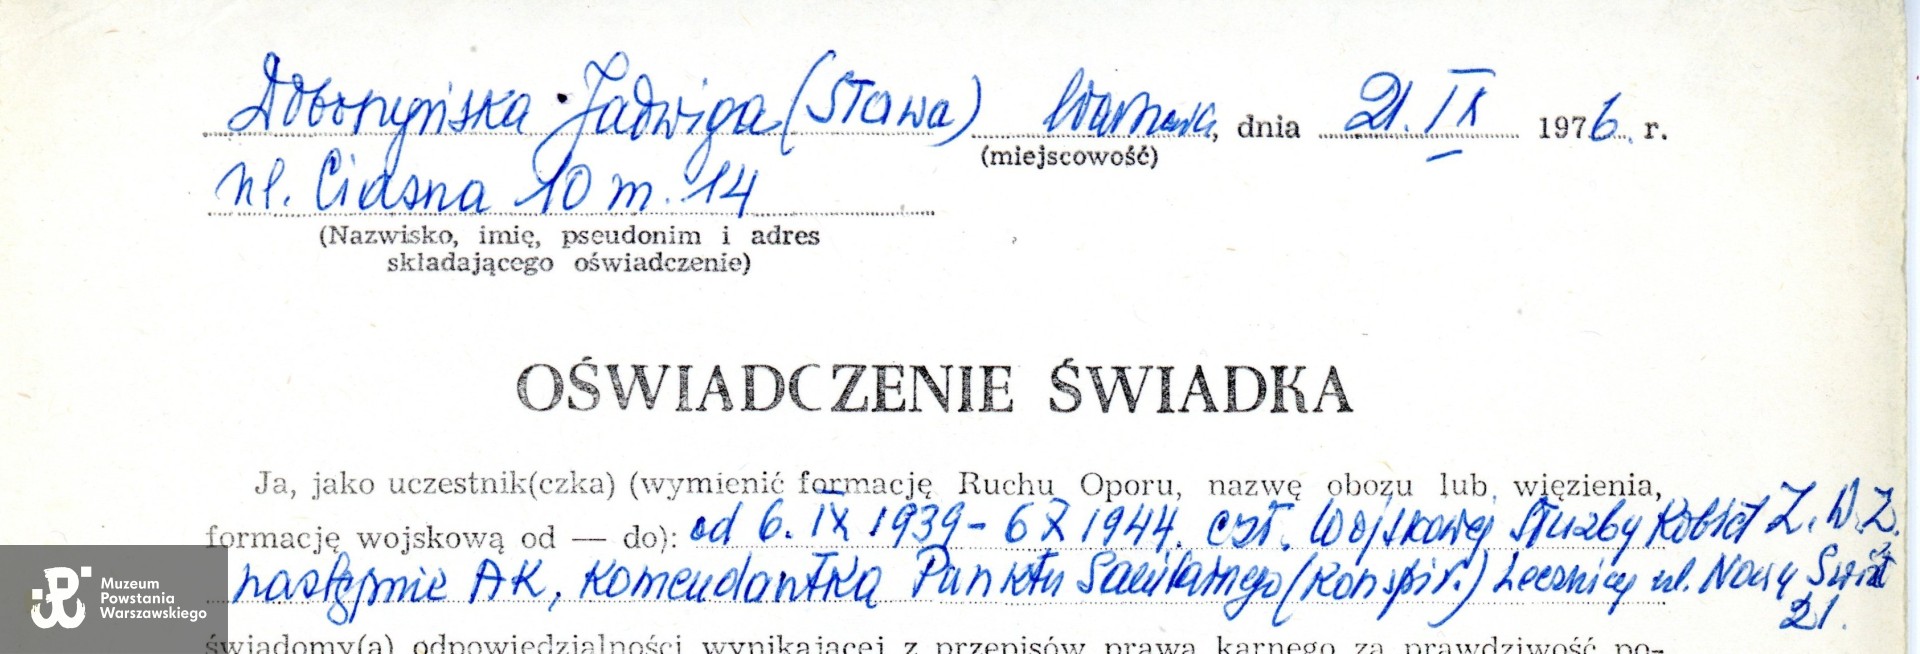 Doboszyńska Jadwiga (Sława) Warszawa, dnia 21. IX 1976. r.
(miejscowość)
ul. Ciasna 10 m. 14
(Nazwisko, imię, pseudonim i adres
składającego oświadczenie)
OŚWIADCZENIE ŚWIADKA
Ja, jako uczestnik(czka) (wymienić formację Ruchu Oporu, nazwę obozu lub więzienia,
formację wojskową od — do): od 6. IX 1939 - 6 X 1944. czł. Wojskowej Służby Kobiet Z.W.Z.
następnie AK, Komendantka Punktu Sanitarnego (konspir.) Lecznicy ul. Nowy Świat
21.
świadomy(a) odpowiedzialności wynikającej z przepisów prawa karnego za prawdziwość po-
Muzeum
Powstania
Warszawskiego